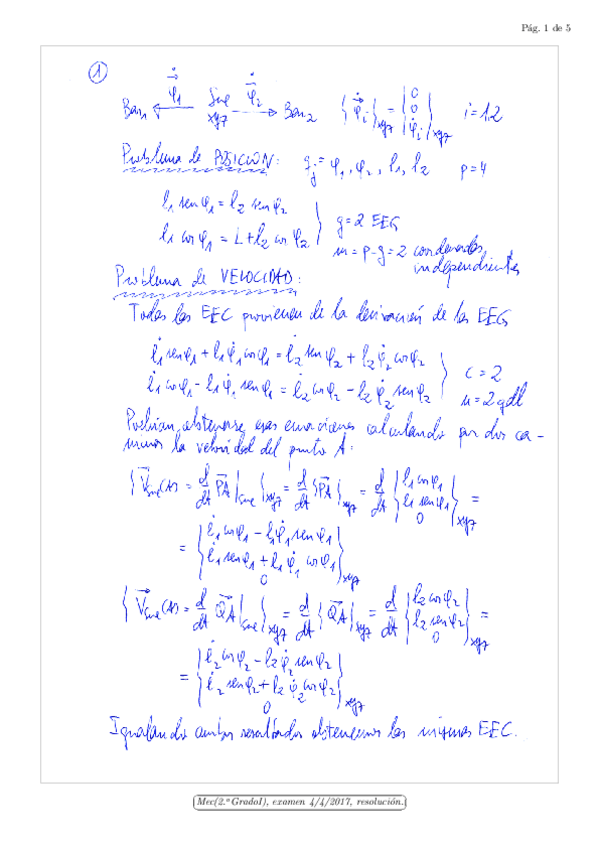 Pág. 1 de 5
①
Barra₁ ←(φ̇₁)— Suelo —(φ̇₂)→ Barra₂ {φ̇ᵢ}xyz = {0 0 φ̇ᵢ}xyz i=1,2
xyz
Problema de POSICIÓN: qⱼ = φ₁, φ₂, l₁, l₂ p=4
l₁ sen φ₁ = l₂ sen φ₂
l₁ cos φ₁ = L + l₂ cos φ₂ } g=2 EEG
m = p-g = 2 coordenadas independientes
Problema de VELOCIDAD:
Todas las EEC provienen de la derivación de las EEG
l̇₁ sen φ₁ + l₁ φ̇₁ cos φ₁ = l̇₂ sen φ₂ + l₂ φ̇₂ cos φ₂
l̇₁ cos φ₁ - l₁ φ̇₁ sen φ₁ = l̇₂ cos φ₂ - l₂ φ̇₂ sen φ₂ } c=2
n=2 gdl
Podrían obtenerse esas ecuaciones calculando por dos ca-
minos la velocidad del punto A:
{V_sue(A) = d/dt PA|sue}xyz = d/dt {PA}xyz = d/dt {l₁ cos φ₁ l₁ sen φ₁ 0}xyz =
= {l̇₁ cos φ₁ - l₁ φ̇₁ sen φ₁ l̇₁ sen φ₁ + l₁ φ̇₁ cos φ₁ 0}xyz
{V_sue(A) = d/dt QA|sue}xyz = d/dt {QA}xyz = d/dt {l₂ cos φ₂ l₂ sen φ₂ 0}xyz =
= {l̇₂ cos φ₂ - l₂ φ̇₂ sen φ₂ l̇₂ sen φ₂ + l₂ φ̇₂ cos φ₂ 0}xyz
Igualando ambos resultados obtenemos las mismas EEC.
Mec(2.º GradoI), examen 4/4/2017, resolución.